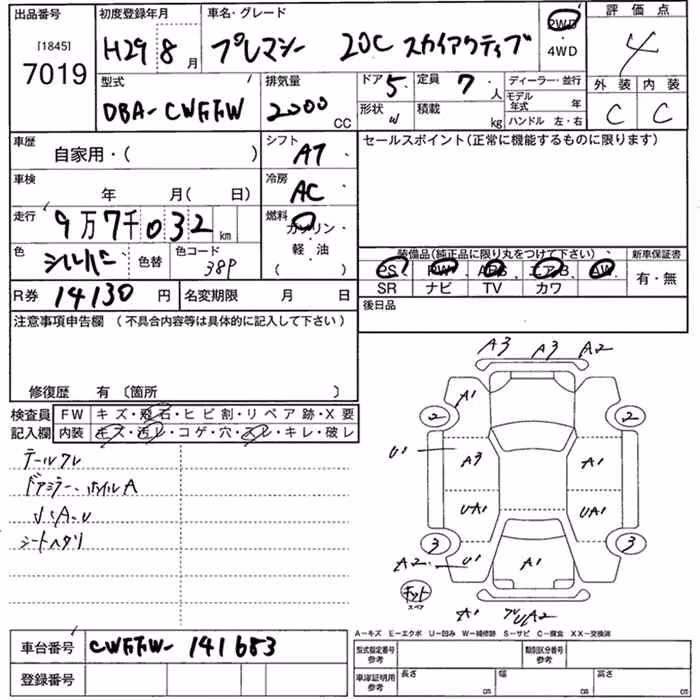 出品番号 [1845] 7019
初度登録年月 H29 8月
車名・グレード プレマシー 20C スカイアクティブ
2WD
4WD
評価点 4
型式 DBA-CWFFW
排気量 2000 CC
ドア 5
形状 W
定員 7 人
積載 kg
ディーラー・並行
モデル年式 年
ハンドル 左・右
外装 C
内装 C
車歴 自家用・( )
シフト AT
セールスポイント(正常に機能するものに限ります)
車検 年 月( 日)
冷房 AC
走行 9万7千032 km
燃料 ガソリン・軽油 ( )
色 シルバー
色替
色コード 38P
装備品(純正品に限り丸をつけて下さい)
新車保証書
PS PW ABS エアB AW
SR ナビ TV カワ
有・無
R券 14130 円
名変期限 月 日
後日品
注意事項申告欄 (不具合内容等は具体的に記入して下さい)
修復歴 有 〔箇所 〕
検査員記入欄
FW キズ・飛石・ヒビ割・リペア跡・X要
内装 キズ・汚レ・コゲ・穴・スレ・キレ・破レ
テールワレ
ドアミラー、ホイルA
シートヘタリ
A3 A3 A2
A1
2 2
U1
A3 A1
UA1 UA1
3 3
A2 U1
A1
キット
スペア
A1 UA2
A-キズ E-エクボ U-凹み W-補修跡 S-サビ C-腐食 XX-交換済
車台番号 CWFFW-141653
登録番号
型式指定番号 参考
類別区分番号 参考
車庫証明用 参考
長さ cm
幅 cm
高さ cm